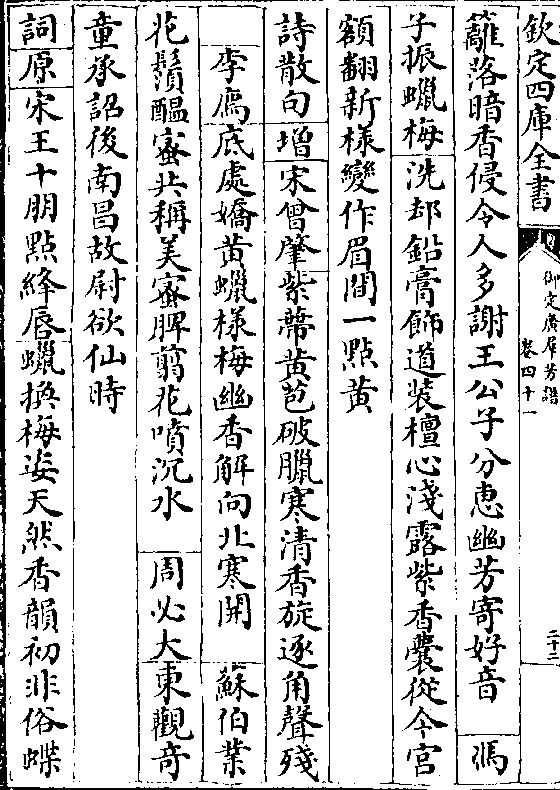 欽定四庫全書
御定廣羣芳譜
卷四十一
二十二
籬落暗香侵令人多謝王公子分惠幽芳寄好音 馮
子振蠟梅洗却鉛膏飾道裝檀心淺露紫香囊從今宮
額翻新樣變作眉間一點黃
詩散句增宋曾肇紫蔕黃苞破臘寒清香旋逐角聲殘
李廌底處嬌黃蠟樣梅幽香解向北寒開 蘇伯業
花鬚醖蜜共稱美蜜脾翦花噴沉水 周必大東觀奇
童承詔後南昌故尉欲仙時
詞原宋王十朋點絳唇蠟換梅姿天然香韻初非俗蝶